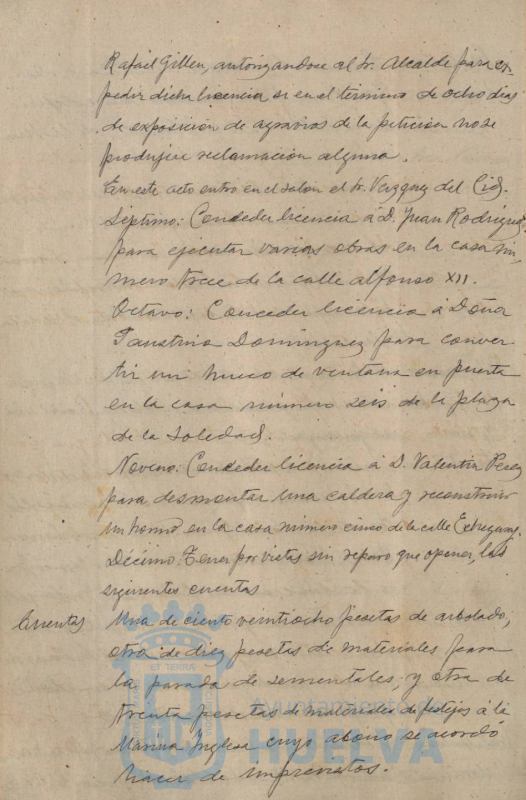 Rafael Gillen, autorizandose al Sr. Alcalde para ex-
pedir dicha licencia si en el término de ocho dias
de exposición de agravios de la petición no se
produjere reclamación alguna.
En este acto entro en el salon el Sr. Vazquez del Cid.
Séptimo: Conceder licencia á D. Juan Rodriguez
para ejecutar varias obras en la casa nú-
mero trece de la calle Alfonso XII.
Octavo: Conceder licencia á Doña
Faustina Dominguez para conver-
tir un hueco de ventana en puerta
en la casa número seis de la plaza
de la Soledad.
Noveno: Conceder licencia á D. Valentin Perez
para desmontar una caldera y reconstruir
un horno en la casa número cinco de la calle Echegaray.
Décimo: Tener por vistas sin reparo que oponer, las
siguientes cuentas
Cuentas
Una de ciento veintiocho pesetas de arbolado,
otra de diez pesetas de materiales para
la parada de sementales; y otra de
treinta pesetas de materiales de festejos á la
Marina Inglesa cuyo abono se acordó
hacer de imprevistos.
ET TERRÆ
Ayuntamiento
HUELVA